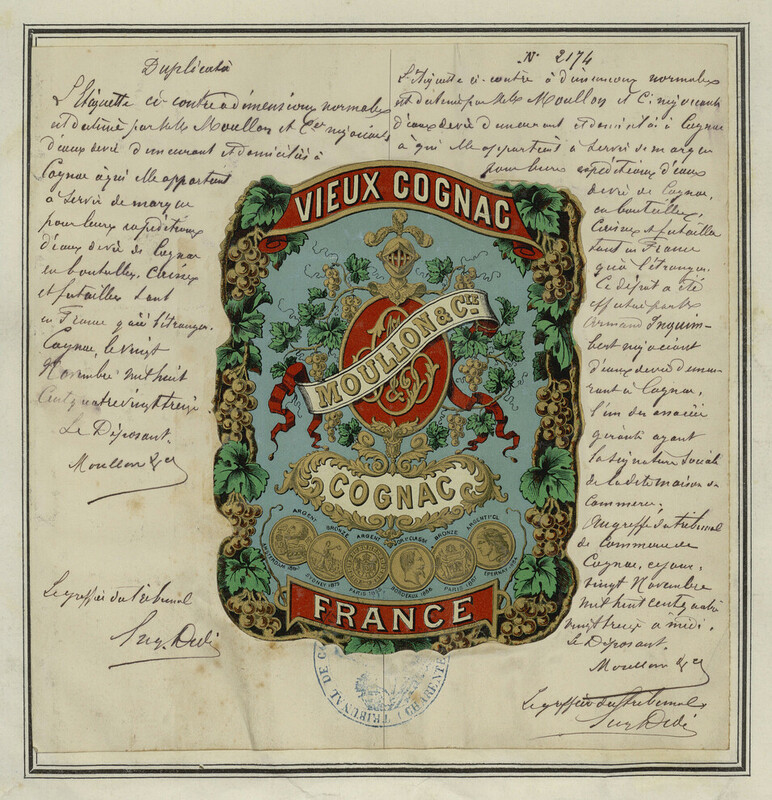 Duplicata
L'étiquette ci-contre a dimensions normales
est destinée par M.M. Moullon et Cie négociants
d'eaux de vie demeurant et domiciliés à
Cognac à qui elle appartient
à servir de marque
pour leurs expéditions
d'eaux de vie de Cognac
en bouteilles, caisses
et futailles tant
en France qu'à l'étranger.
Cognac, le vingt
Novembre mil huit
Cent quatre vingt treize
Le Déposant.
Moullon & Cie
Le greffier du tribunal
N° 2174
L'étiquette ci-contre à dimensions normales
est destinée par M.M. Moullon et Cie négociants
d'eaux de vie demeurant et domiciliés à Cognac
à qui elle appartient à servir de marque
pour leurs expéditions d'eaux
de vie de Cognac,
en bouteilles,
Caisses et futailles
tant en France
qu'à l'étranger.
Ce dépôt a été
effectué par M.
Armand Inquim-
bert négociant
d'eaux de vie demeu-
rant à Cognac,
l'un des associés
gérants ayant
la signature Sociale
de la dite maison de
Commerce.
Au greffe du tribunal
de Commerce de
Cognac, ce jour,
vingt Novembre
mil huit cent quatre
vingt treize à midi.
Le Déposant.
Moullon & Cie
Le greffier du tribunal
VIEUX COGNAC
MOULLON & CIE
COGNAC
ARGENT BRONZE ARGENT OR 1RE CLASSE BRONZE ARGENT 1RE CL.
SYDNEY 1879 PARIS BORDEAUX PARIS EPERNAY
FRANCE
TRIBUNAL DE C CHARENTE